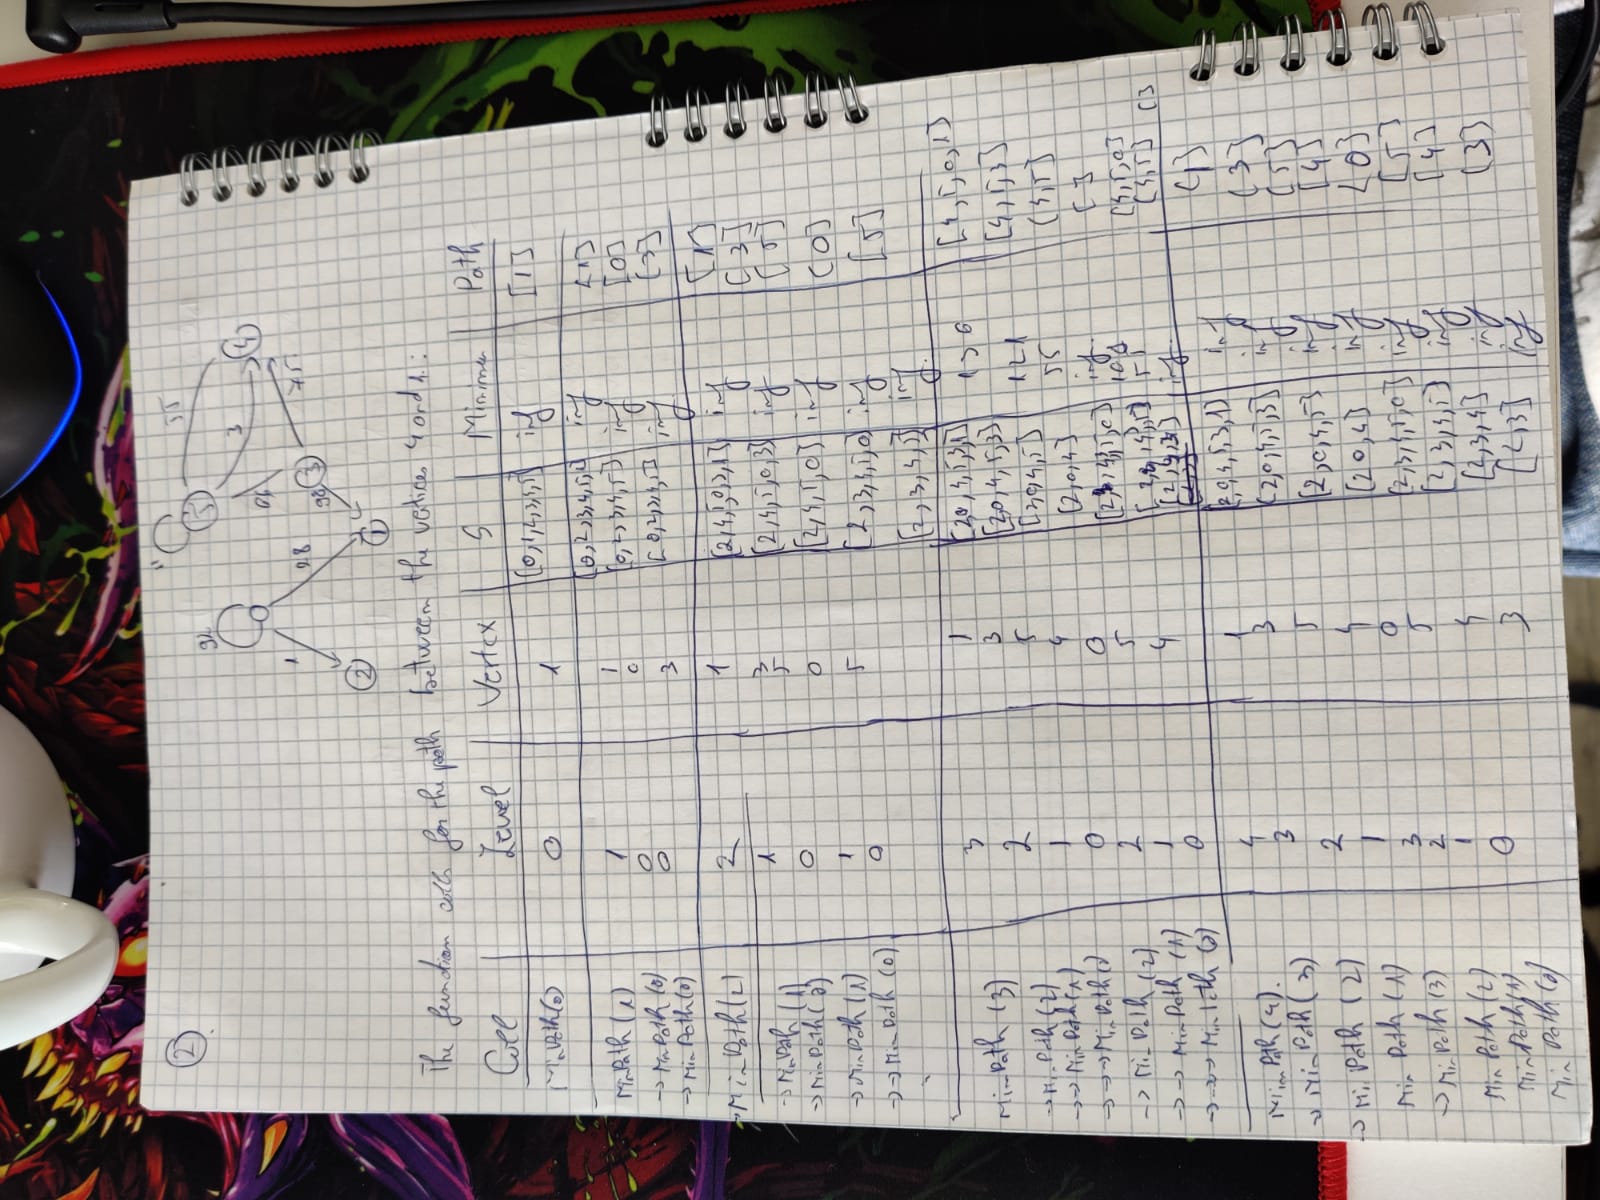 ②
55
3
66
75
98
28
32
1
0
1
2
3
4
The function calls for the path between the vertices 4 and 1:
Call Level Vertex S Minimum Path
MinPath(0) 0 1 [0,1,2,3,4,5] inf [1]
MinPath(1) 1 1 inf [1]
->MinPath(0) 0 0 [0,2,3,4,5] inf [0]
->MinPath(0) 0 3 inf [3]
MinPath(2) 2 1 inf [1]
->MinPath(1) 1 3 [2,4,5,0,3] inf [3]
->MinPath(0) 0 5 [2,4,5,0] inf [5]
->MinPath(1) 1 0 [2,3,4,5,0] inf [0]
->->MinPath(0) 0 5 [2,3,4,5] inf [5]
MinPath(3) 3 1 [2,0,4,5,3,1] [4,5,0,1]
->MinPath(2) 2 3 [2,0,4,5,3] 121 [4,5,3]
->->MinPath(1) 1 5 [2,0,4,5] 55 [4,5]
->->->MinPath(0) 0 4 [2,0,4] inf [ ]
->MinPath(2) 2 0 [4,5,0]
->->MinPath(1) 1 5 [4,5]
->->->MinPath(0) 0 4 inf [ ]
MinPath(4) 4 1 [2,0,4,5,3,1] inf [1]
->MinPath(3) 3 3 [2,0,4,5,3] inf [3]
->MinPath(2) 2 5 [2,0,4,5] inf [5]
MinPath(1) 1 4 [2,0,4] inf [4]
->MinPath(3) 3 0 [2,3,4,5,0] inf [0]
MinPath(2) 2 5 [2,3,4,5] inf [5]
MinPath(1) 1 4 [2,3,4] inf [4]
MinPath(0) 0 3 [2,3] inf [3]